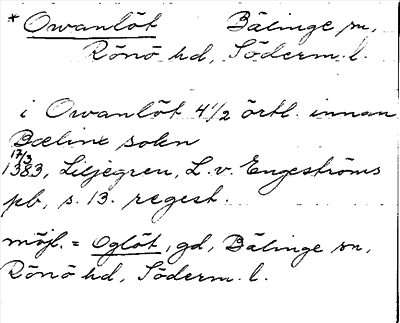 * Owanlöt Bälinge sn,
Rönö hd, Söderm. l.
i Owanlöt 4 1/2 örtl. innan
Bælinx sokn
17/3
1383, Liljegren, L. v. Engeströms
pb, s. 13. regest.
möjl. = Oglöt, gd, Bälinge sn,
Rönö hd, Söderm. l.